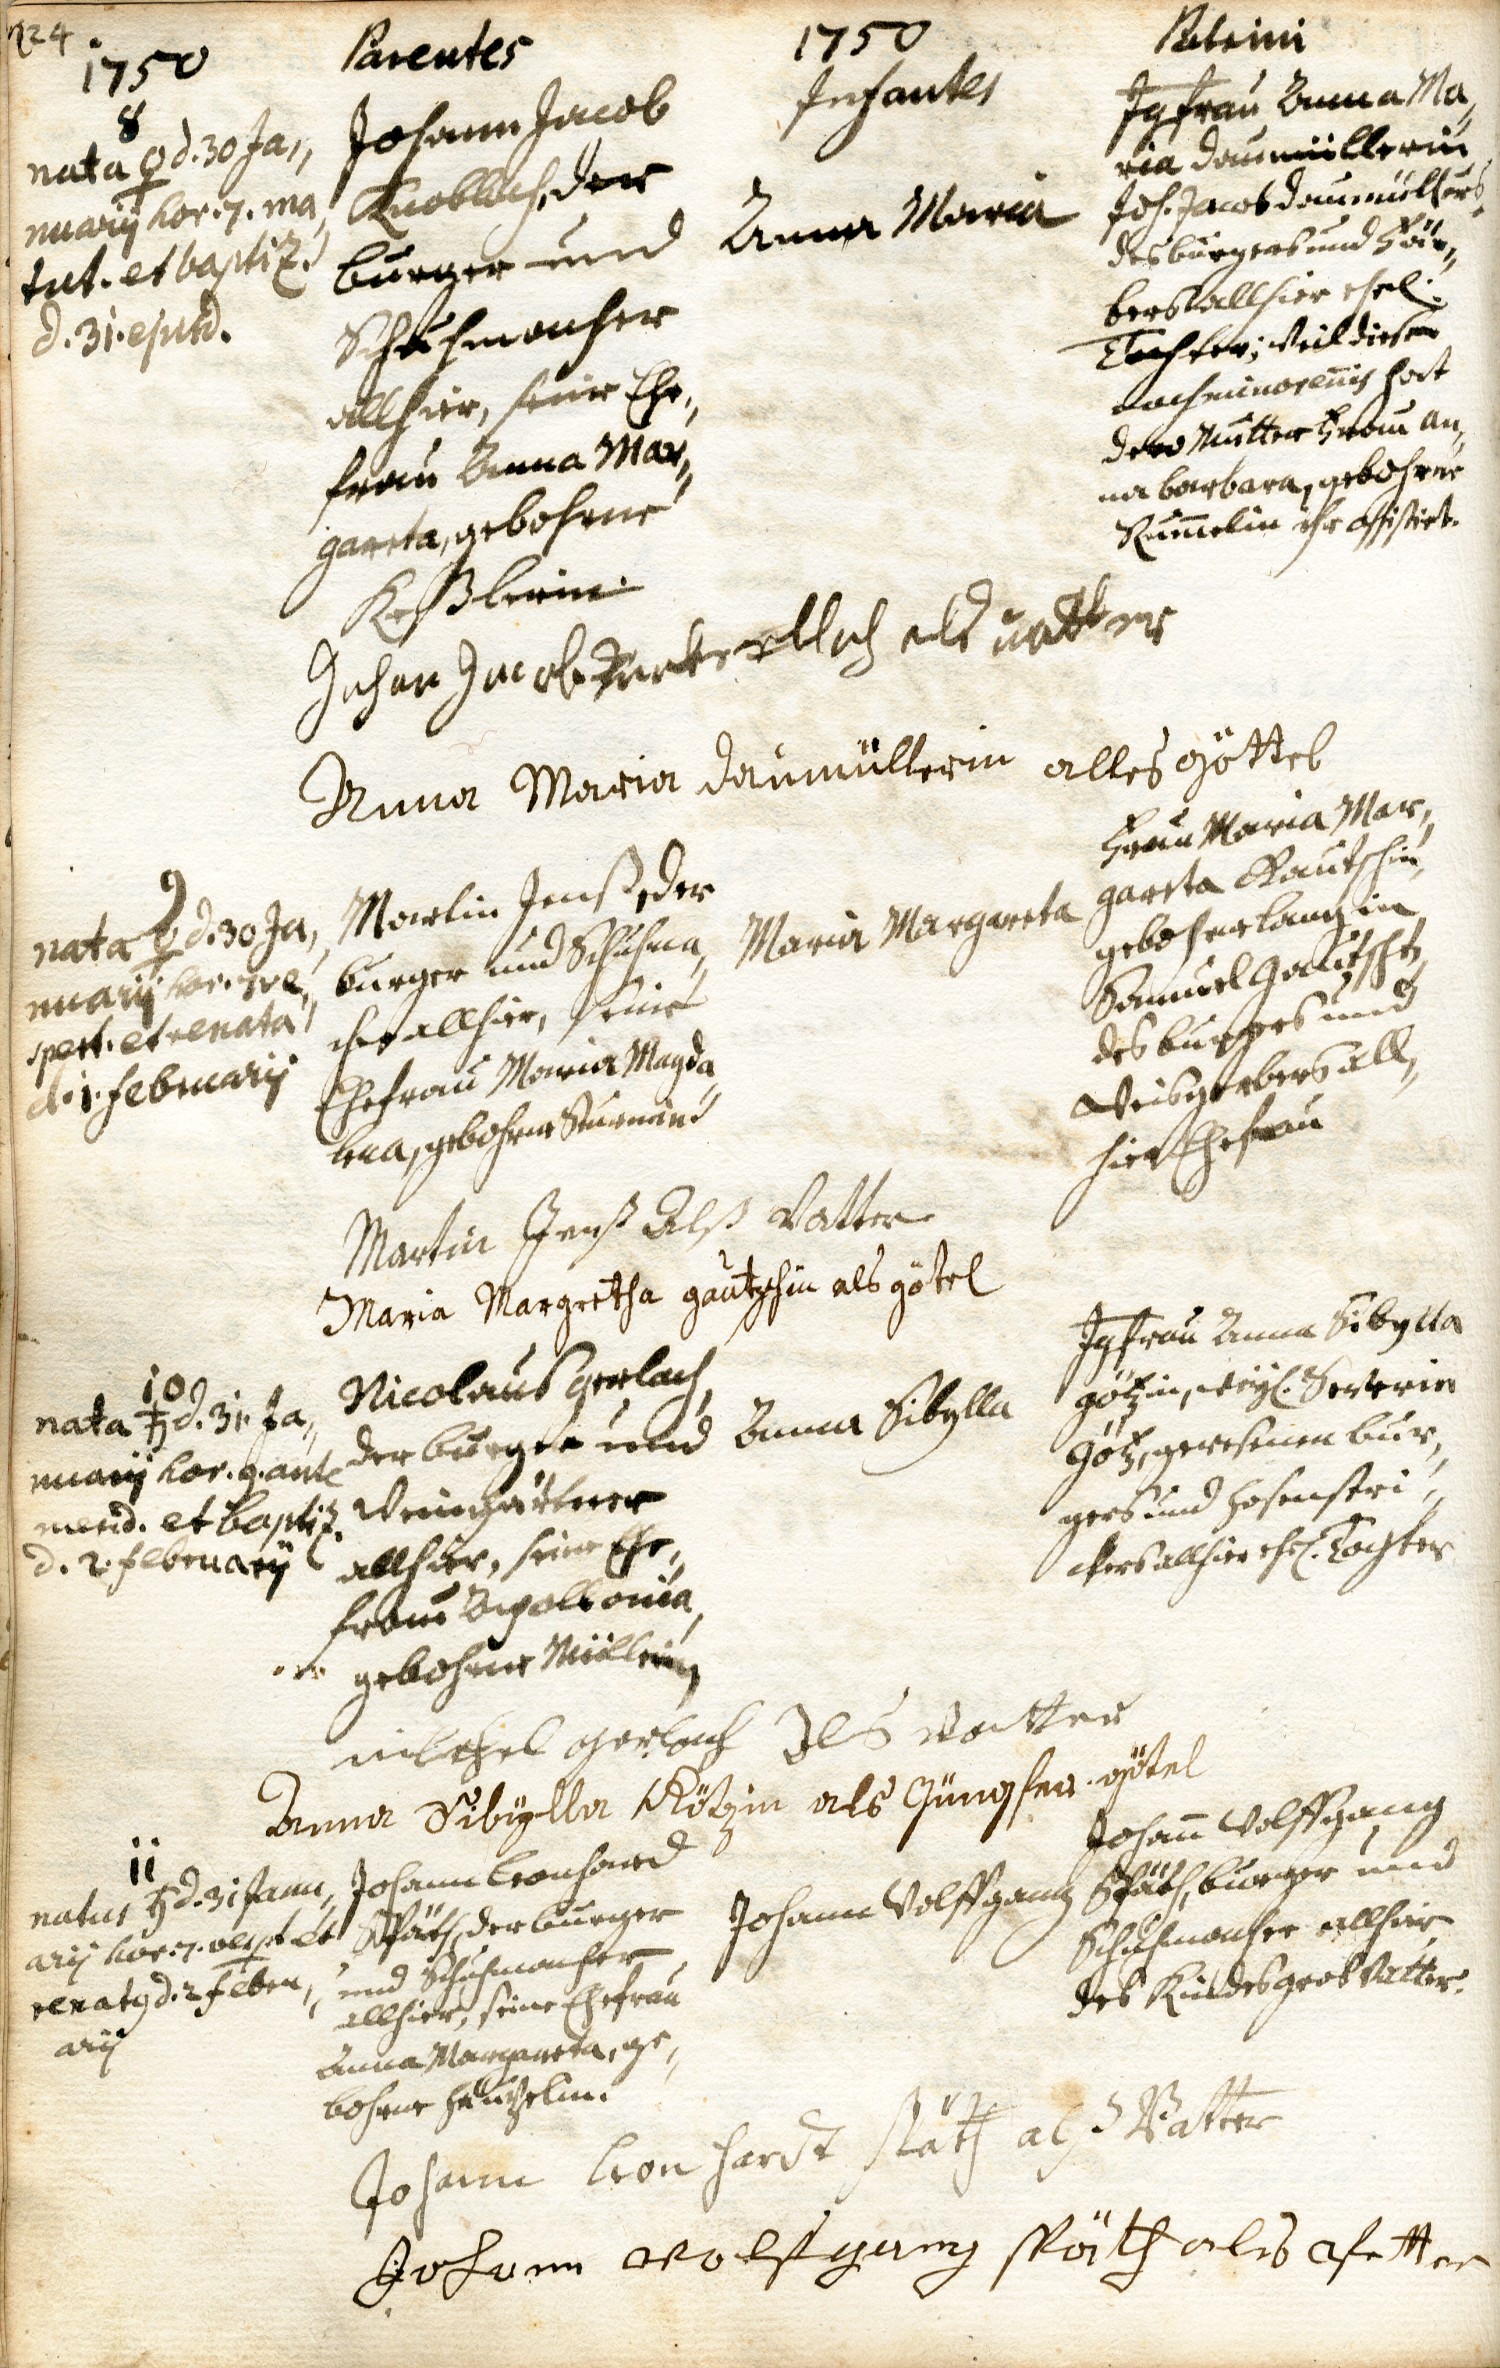 124
1750
Parentes
1750
Infantes
Patrini
8
nata ♀ d. 30 Ja,,
nuarij hor. 7. ma,,
tut. et baptiz.
d. 31. ejusd.
Johann Jacob
Knobloch, der
burger und
Schuhmacher
allhier, seine Ehe,,
frau Anna Mar,,
gareta, gebohrne
Keßlerin.
Anna Maria
Jgfrau Anna Ma,,
ria Daumüllerin
Joh. Jacob Daumüllers,
des burgers und Fär,,
bers allhier ehel.
Tochter; weil diese
noch minorennis hat
dero Mutter Frau An,,
na barbara, gebohrne
Rum̄elin ihr assistirt.
Johan Jacob als vatter
Anna Maria daumüllerin alles göttel
9
nata ♀ d. 30 Ja,,
nuarij hor. 7 ve,,
spert. et renata
d. 1. Februarij
Martin Jenß, der
burger und Schuhma,,
cher allhier, seine
Ehefrau Maria Magda,,
lena, gebohrne Sturmin
Maria Margareta
Frau Maria Mar,,
gareta Gautschin,
gebohrne Langin
Samuel Gautschs,
des burgers und
Weisgerbers all,,
hier Ehefrau
Martin Jenß Alß Vatter
Maria Margretha gautzschin als götel
10
nata ♄ d. 31. Ja,,
nuarij hor. 9. ante
merid. et baptiz.
d. 2. Februarij
Nicolaus Gerlach,
der burger und
Weingärtner
allhier, seine Ehe,,
frau Apollonia,
gebohrne Müllerin
Anna Sibylla
Jgfrau Anna Sibylla
Götzin, weyl. Severin
Götz, gewesenen bur,,
gers und Hosenstri,,
ckers allhier ehel. Tochter
gerlach Als vatter
Anna Sibylla Götzin als Jungfer götel
11
natus ♄ d. 31 Janu,,
arij hor. 7. vesp. et
renatq d. 2 Febru,,
arij
Johann Leonhard
Späth, der burger
und Schuhmacher
allhier, seine Ehefrau
Anna Margareta, ge,,
bohrne
Johann Wolffgang
Johan̄ Wolffgang
Späth, burger und
Schuhmacher allhier
des Kindes gros Vatter.
Johann Leonhardt Späth alß Vatter
Johann wolfgang späth als pfetter